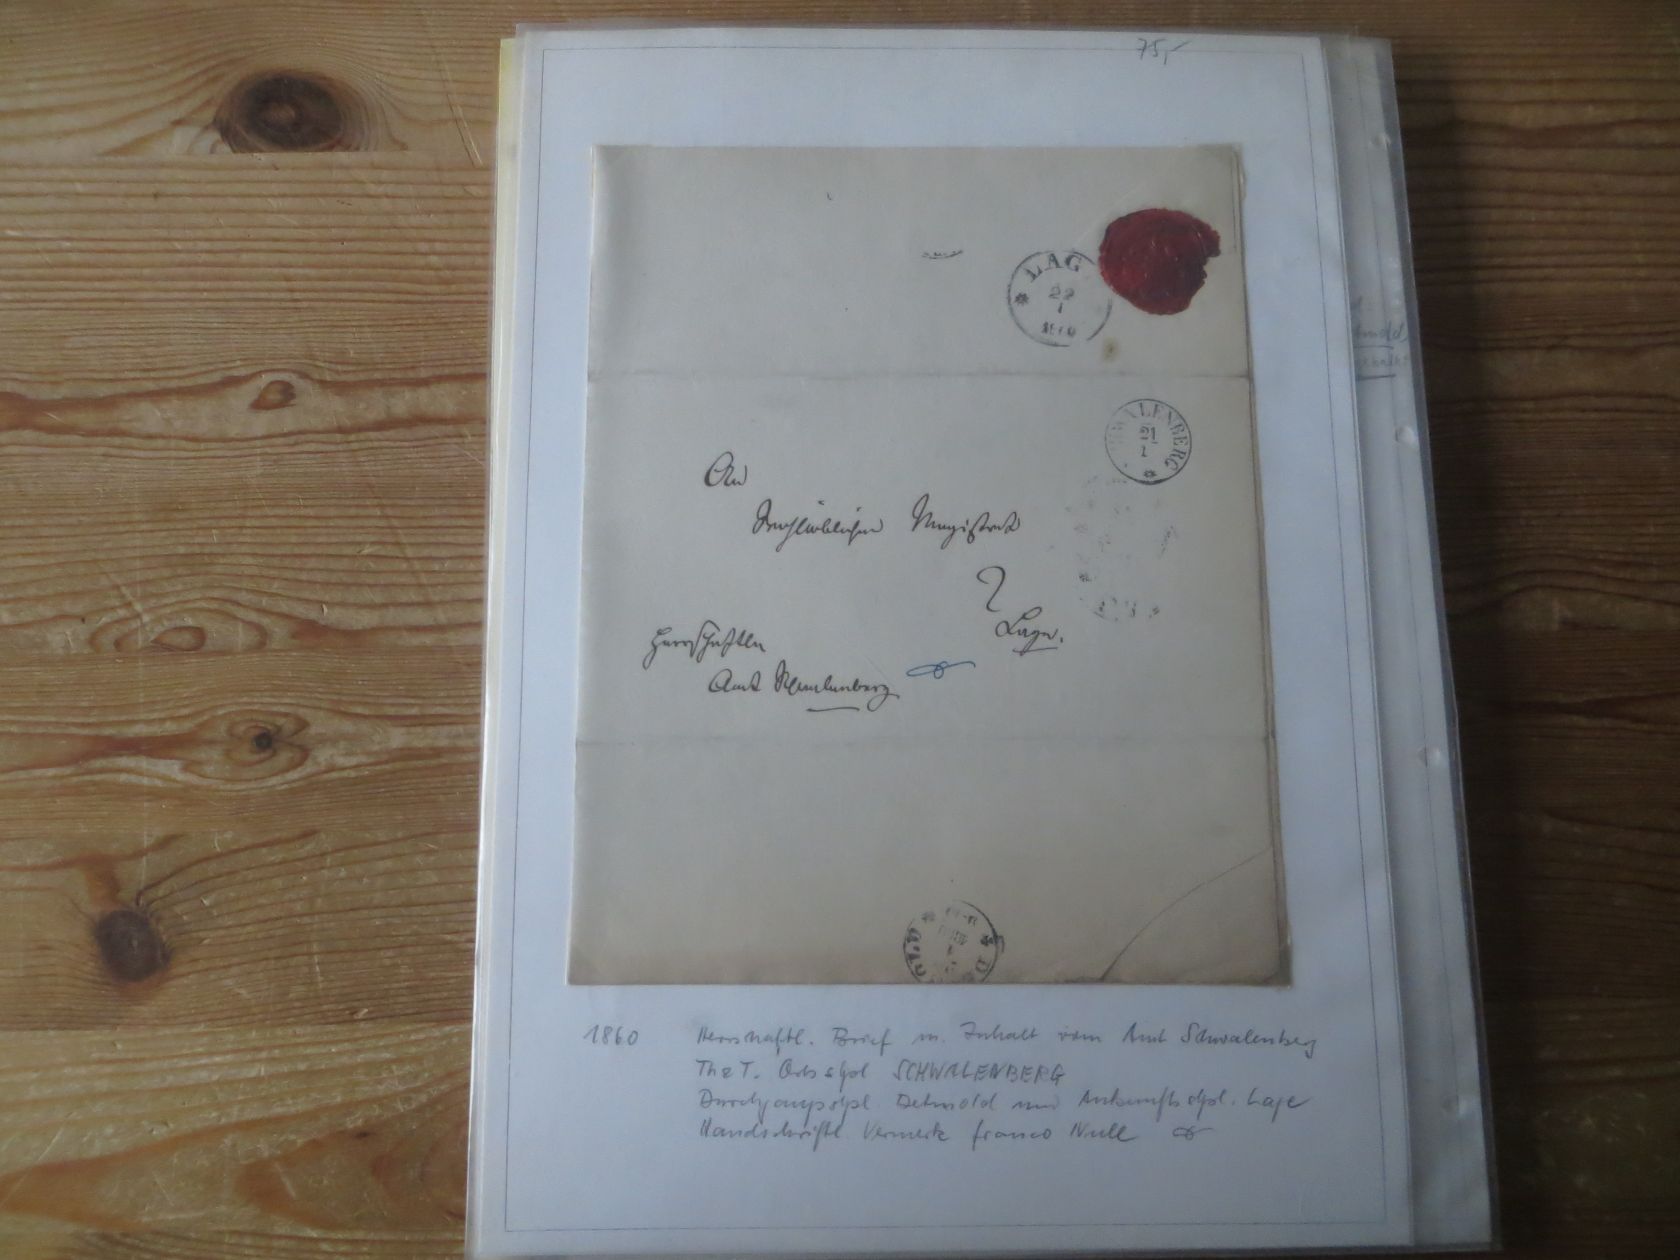 75,-
LAG
22
1
SCHWALENBERG
21
1
An
Hochlöblichen Magistrat
Lage.
Herrschaftln
Amt Schwalenberg
D
1860 Herrschaftl. Brief m. Inhalt vom Amt Schwalenberg
T&T. Ortsstpl SCHWALENBERG
Durchgangsstpl. Detmold und Ankunftsstpl. Lage
Handschriftl. Vermerk franco Null